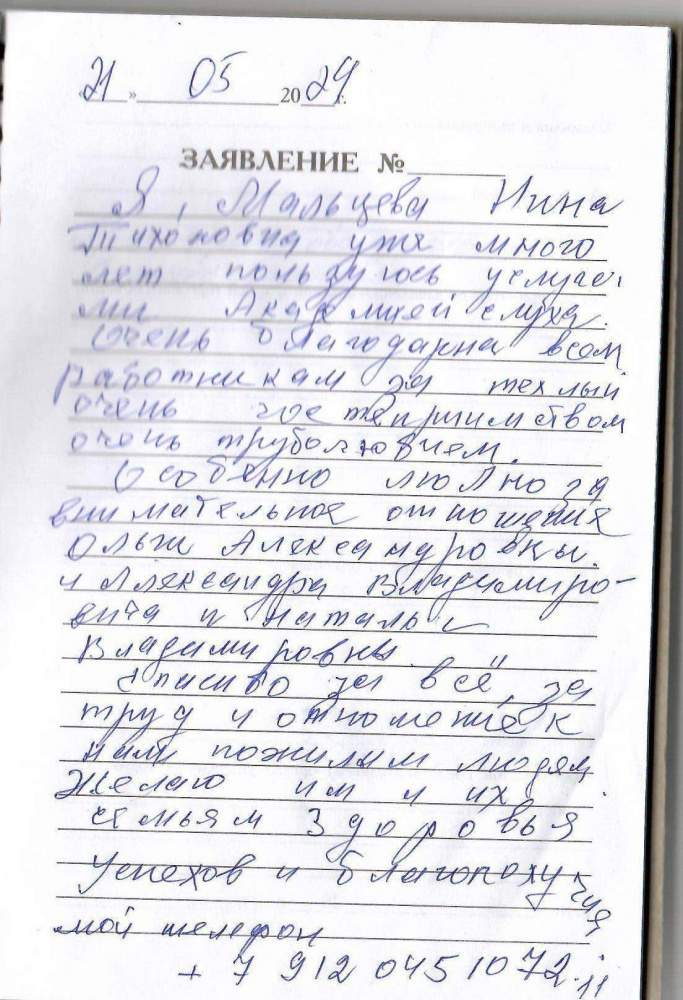 «21» 05 2024 г.
ЗАЯВЛЕНИЕ №
Я, Мальцева Нина
Тихоновна уже много
лет пользуюсь услуга
ми Академией слуха.
Очень благодарна всем
работникам за теплый
очень гостеприимством
очень трудолюбием.
Особенно люблю за
внимательное отношение
Ольги Александровны.
и Александра Владимиро-
вича и Натальи
Владимировны
Спасибо за всё, за
труд и отношение к
нам пожилым людям
Желаю им и их
семьям здоровья
Успехов и благополучия
мой телефон
+ 7 912 045 10 72.